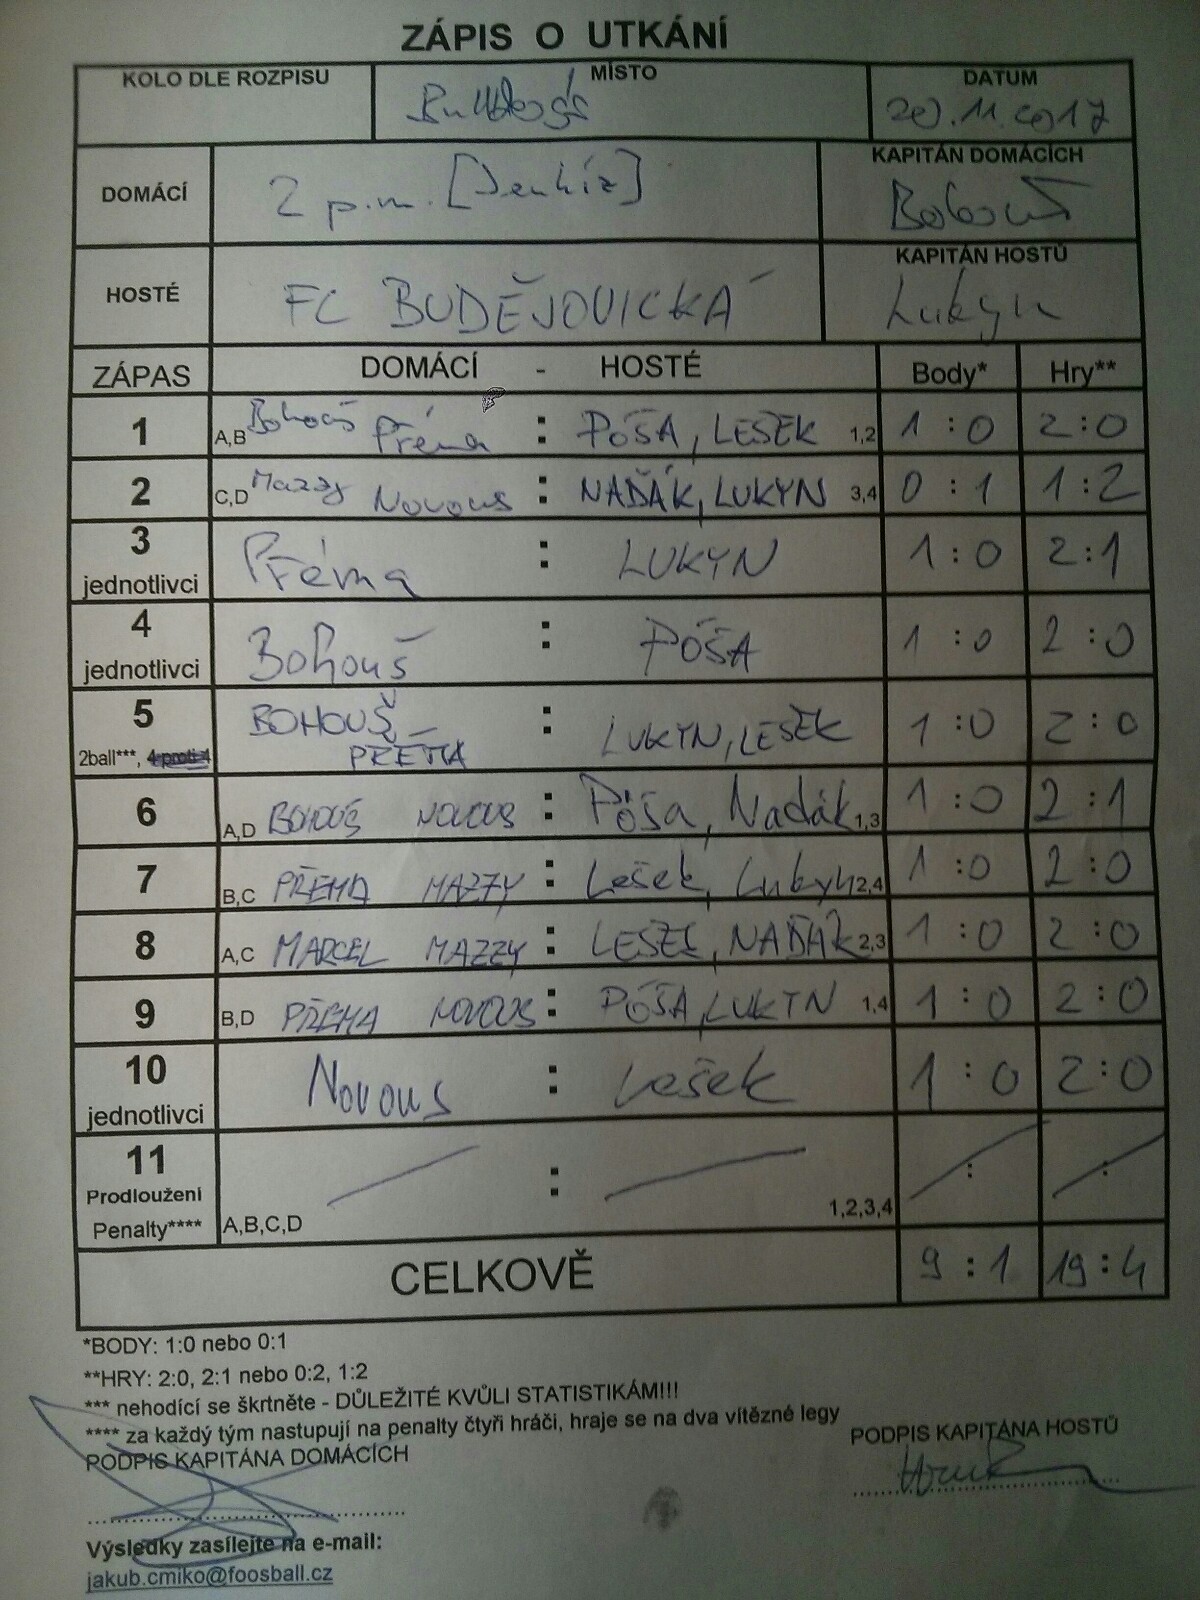 ZÁPIS O UTKÁNÍ
KOLO DLE ROZPISU MÍSTO DATUM
20.11.2017
DOMÁCÍ 2 p.m. KAPITÁN DOMÁCÍCH
Bohouš
HOSTÉ FC BUDĚJOVICKÁ KAPITÁN HOSTŮ
Lukyn
ZÁPAS DOMÁCÍ - HOSTÉ Body* Hry**
1 A,B Bohouš Přéma : PÓŠA, LEŠEK 1,2 1:0 2:0
2 C,D Mazzy Novous : NAĎÁK, LUKYN 3,4 0:1 1:2
3 jednotlivci Přéma : LUKYN 1:0 2:1
4 jednotlivci Bohouš : PÓŠA 1:0 2:0
5 BOHOUŠ : LUKYN, LEŠEK 1:0 2:0
2ball***, 4 proti 4 PŘÉMA
6 A,D BOHOUŠ NOVOUS : Póša, Naďák 1,3 1:0 2:1
7 B,C PŘÉMA MAZZY : Lešek, Lukyn 2,4 1:0 2:0
8 A,C MARCEL MAZZY : LEŠEK, NAĎÁK 2,3 1:0 2:0
9 B,D PŘÉMA NOVOUS : PÓŠA, LUKYN 1,4 1:0 2:0
10 jednotlivci Novous : Lešek 1:0 2:0
11
Prodloužení : : :
Penalty**** A,B,C,D 1,2,3,4
CELKOVĚ 9:1 19:4
*BODY: 1:0 nebo 0:1
**HRY: 2:0, 2:1 nebo 0:2, 1:2
*** nehodící se škrtněte - DŮLEŽITÉ KVŮLI STATISTIKÁM!!!
**** za každý tým nastupují na penalty čtyři hráči, hraje se na dva vítězné legy
PODPIS KAPITÁNA DOMÁCÍCH PODPIS KAPITÁNA HOSTŮ
Výsledky zasílejte na e-mail:
jakub.cmiko@foosball.cz